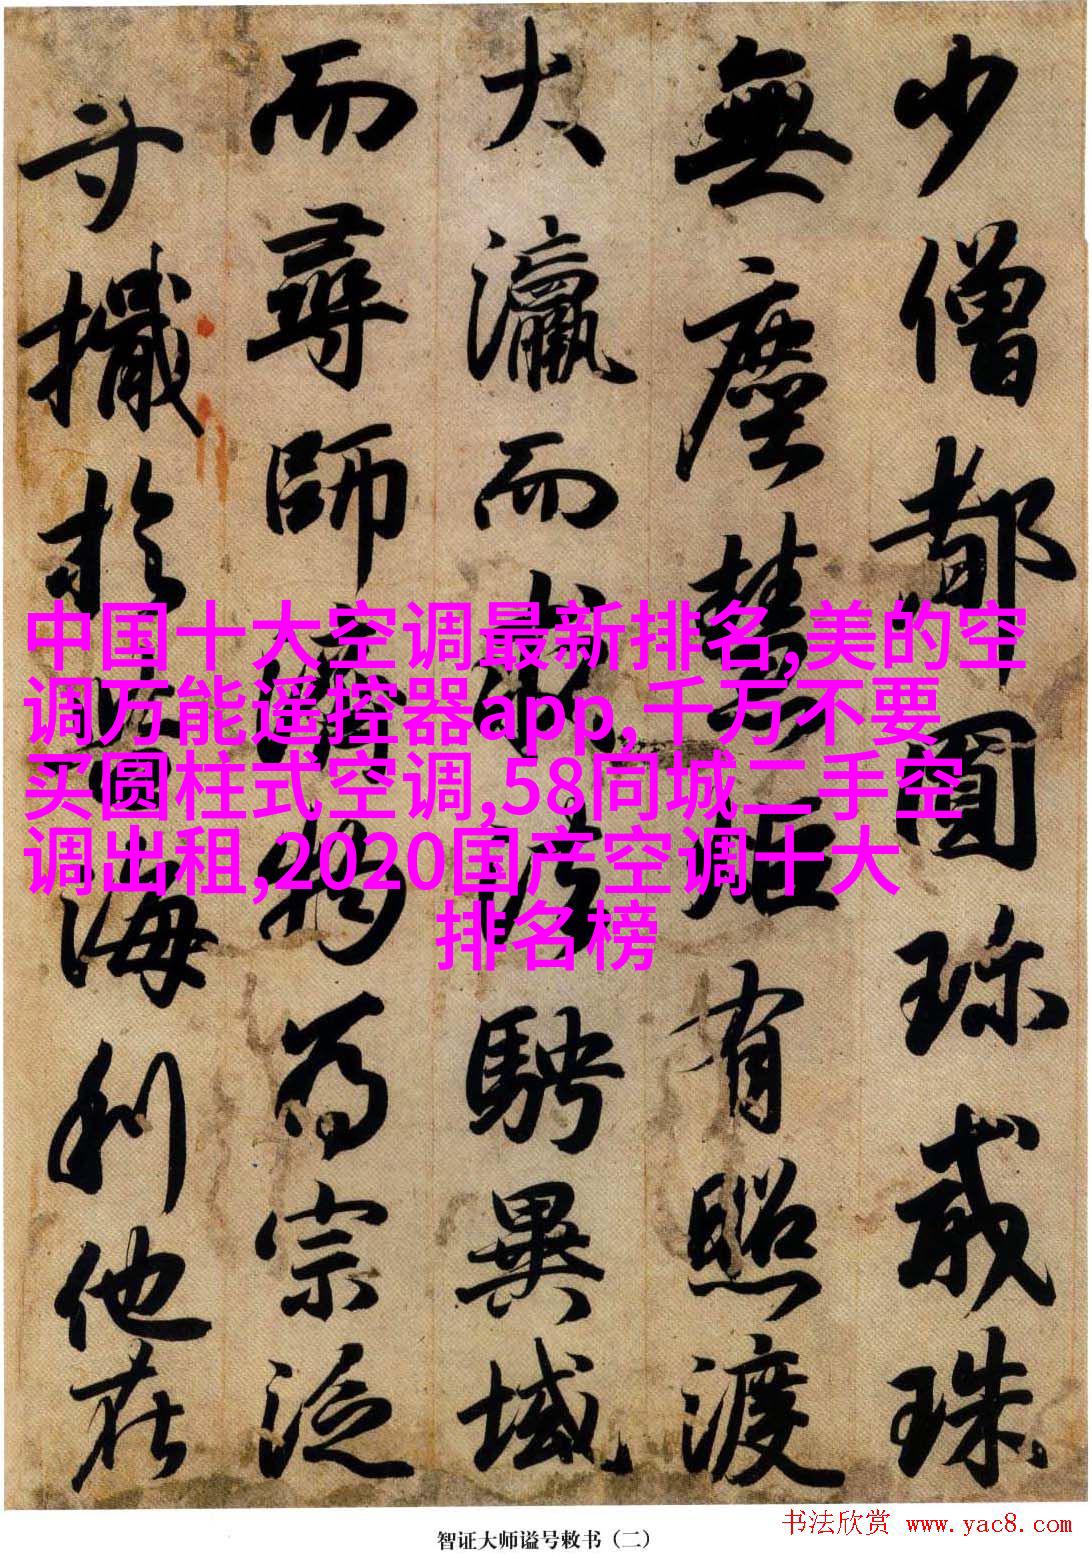 少僧都圓珎戒珠
無塵慧炬有照渡
大瀛而求法騁異域
而尋師濟物為宗泛
寸檝於苦海利他在
中国十大空调最新排名,美的空
调万能遥控器app,千万不要
买圆柱式空调,58同城二手空
调出租,2020国产空调十大
排名榜
智证大师谥号敕书（二）
书法欣赏 www.yac8.com